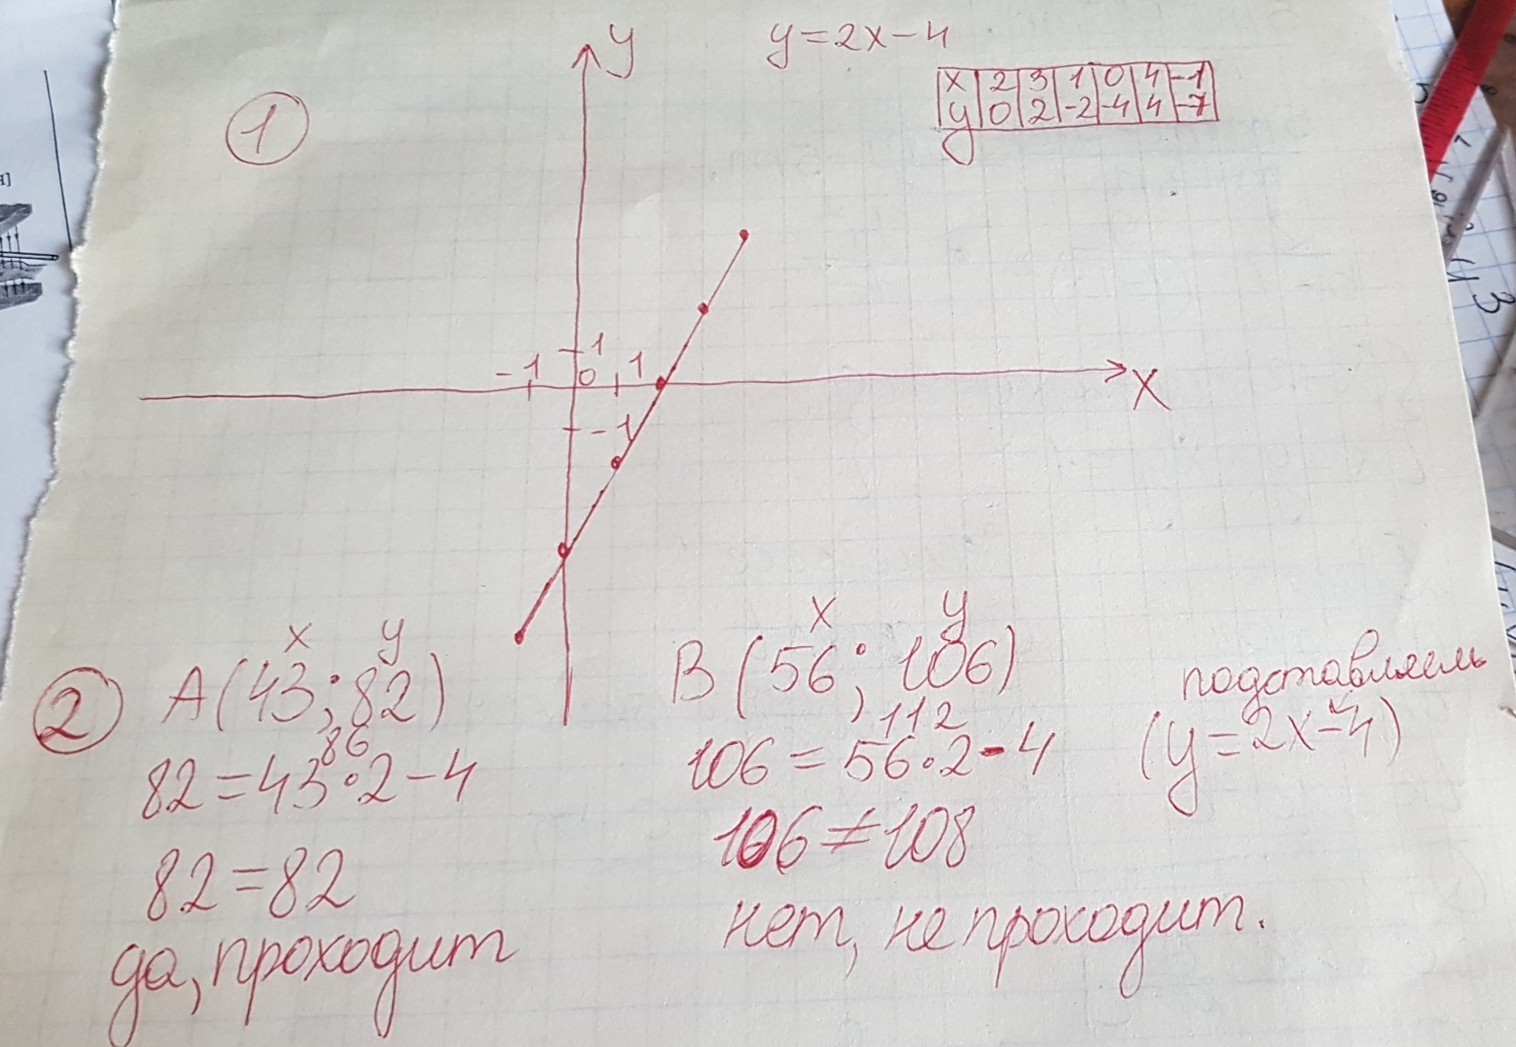 y=2x-4
x 2 3 1 0 4 -1
y 0 2 -2 -4 4 -7
1
y
1
-1 0 1
x
-1
2
x y
A(43;82)
86
82=43·2-4
82=82
да, проходит
x y
B(56;106)
112
106=56·2-4
106≠108
нет, не проходит.
подставляем
(y=2x-4)